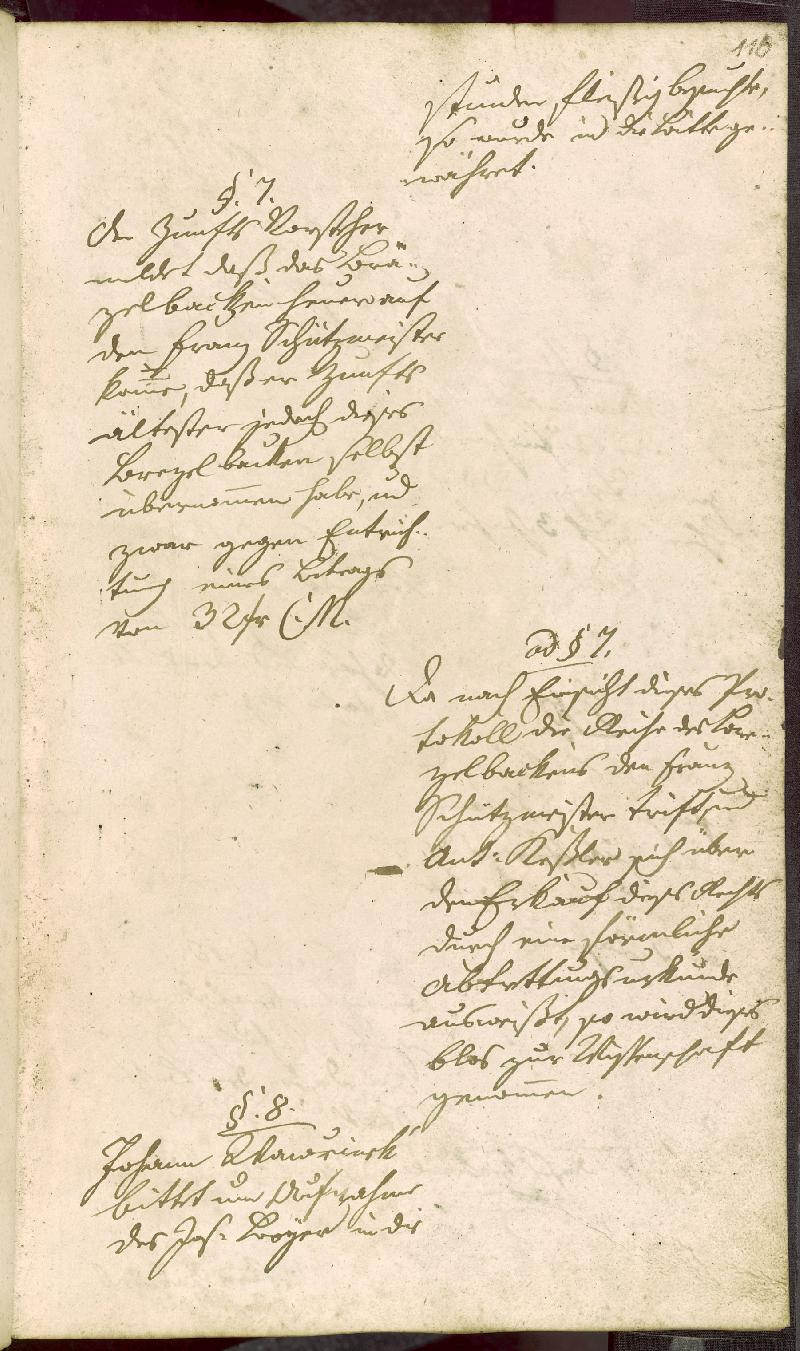 116
stunden fleißig besuchte,
so wurde in die Bitte ge-
währet.
§. 7.
Der Zunfts Vorsteher
meldet daß das Brä-
zelbacken heuer auf
den Franz Schützmeister
kom̄e, daß er Zunfts
ältester jedoch dieses
Brezelbacken selbst
übernom̄en habe, und
zwar gegen Entrich-
tung eines Betrags
von 32 fr C.M.
ad § 7.
Da nach Einsicht dieses Pro-
tokoll die Reihe des Bre-
zelbackens den Franz
Schützmeister trift, und
Ant: Keßler sich über
den Erkauf dieses Rechts
durch eine förmliche
Abtrettungsurkunde
ausweißt, so wird dieses
blos zur Wissenschaft
genom̄en.
§. 8.
Johann
bittet um Aufnahme
des Jos: in die